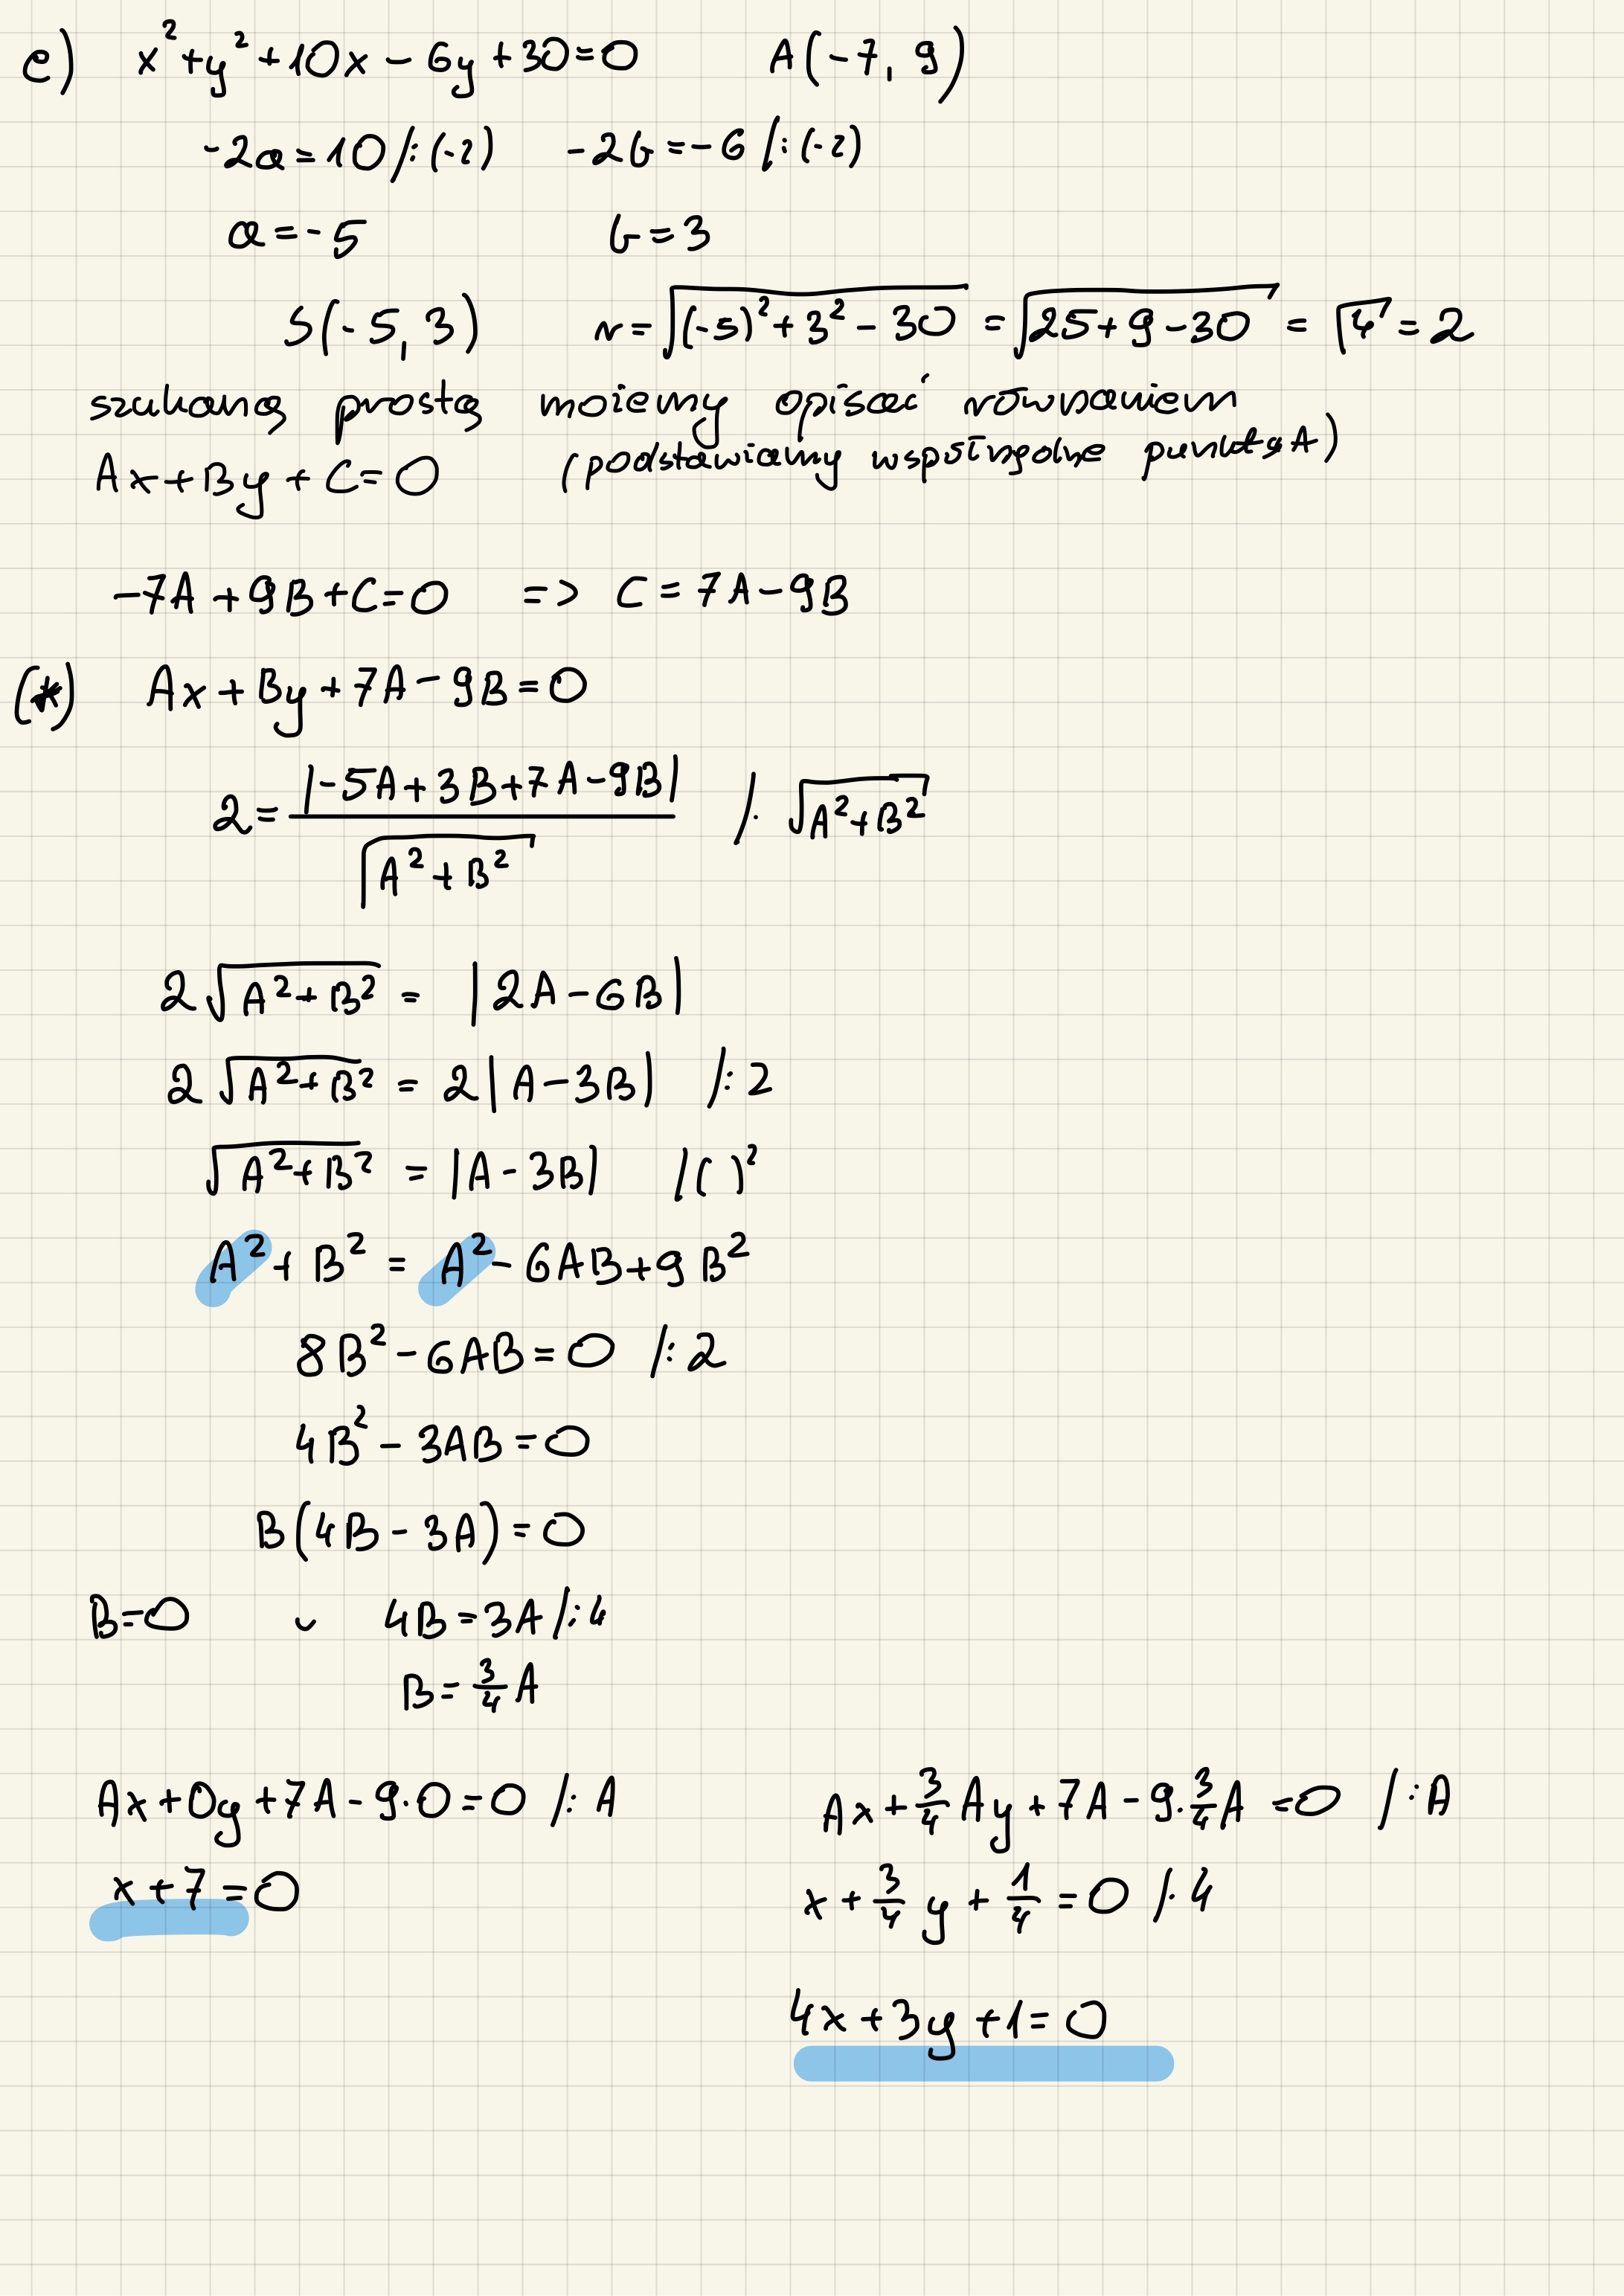 e) x²+y²+10x-6y+30=0 A(-7, 9)
-2a=10 /:(-2) -2b=-6 /:(-2)
a=-5 b=3
S(-5, 3) r=√((-5)²+3²-30) = √(25+9-30) = √4 = 2
szukaną prostą możemy opisać równaniem
Ax+By+C=0 (podstawiamy współrzędne punktu A)
-7A+9B+C=0 => C=7A-9B
(*) Ax+By+7A-9B=0
2= |-5A+3B+7A-9B| / √(A²+B²) /· √(A²+B²)
2√(A²+B²) = |2A-6B|
2√(A²+B²) = 2|A-3B| /:2
√(A²+B²) = |A-3B| /( )²
A²+B² = A²-6AB+9B²
8B²-6AB=0 /:2
4B²-3AB=0
B(4B-3A)=0
B=0 ∪ 4B=3A /:4
B=3/4 A
Ax+0y+7A-9·0=0 /:A Ax+3/4 Ay+7A-9·3/4 A=0 /:A
x+7=0 x+3/4 y+1/4=0 /·4
4x+3y+1=0